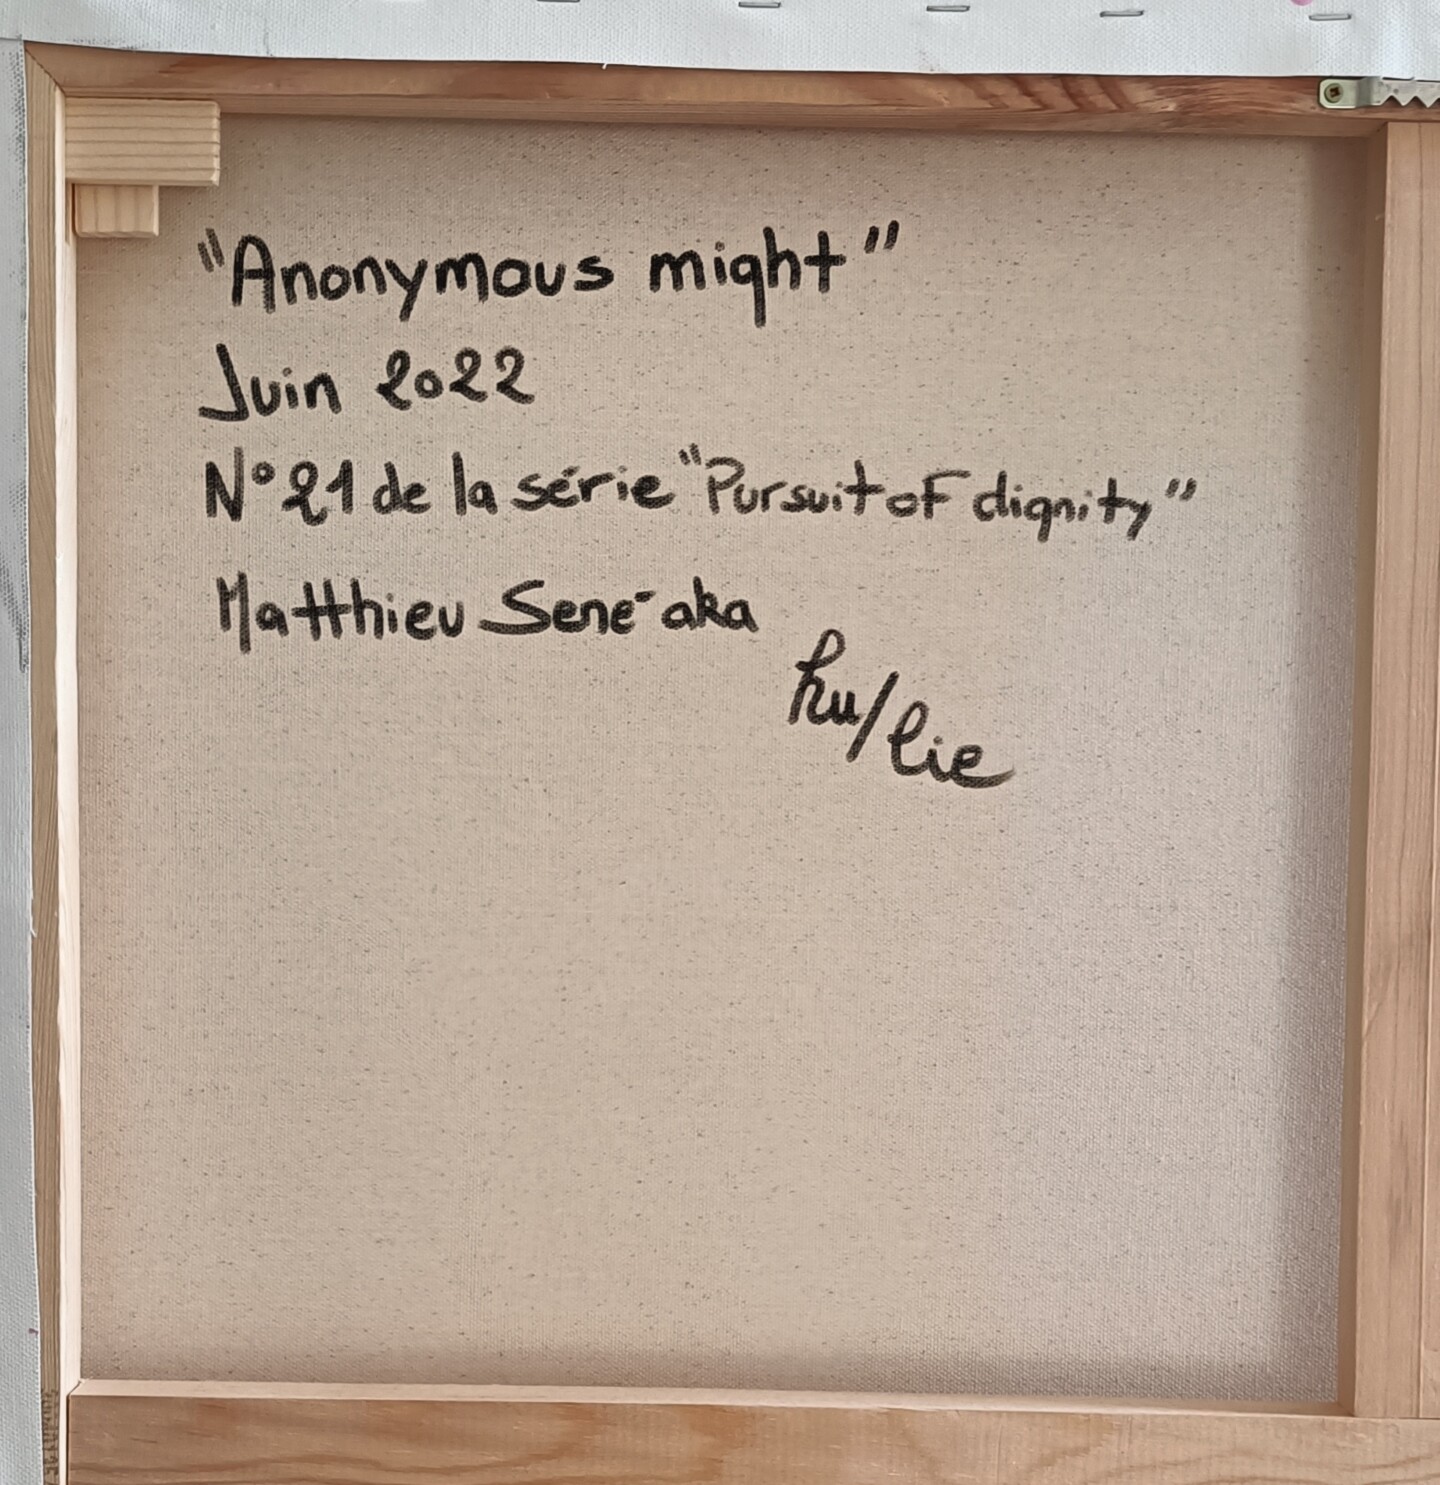 "Anonymous might"
Juin 2022
N°21 de la série "Pursuit of dignity"
Matthieu Sené aka
hu/lie